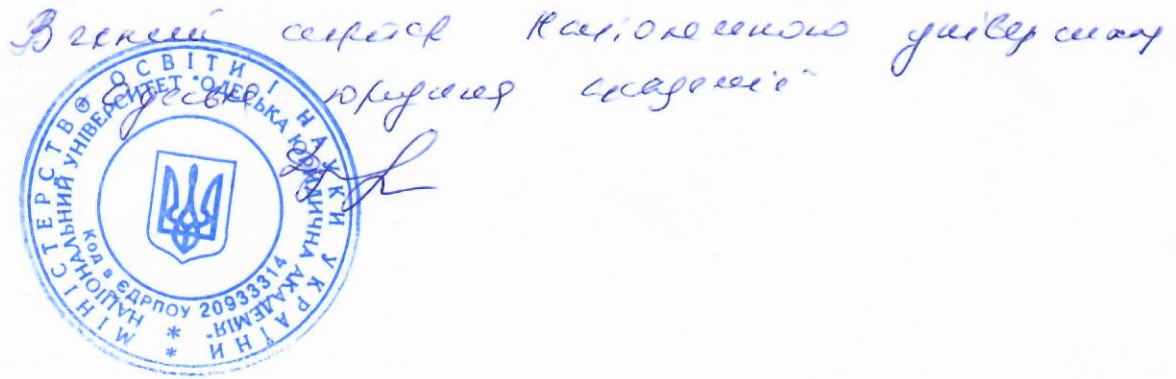 Вчений секретар Національного університету
"Одеська юридична академія"
МІНІСТЕРСТВО ОСВІТИ І НАУКИ УКРАЇНИ
НАЦІОНАЛЬНИЙ УНІВЕРСИТЕТ "ОДЕСЬКА ЮРИДИЧНА АКАДЕМІЯ"
Код в ЄДРПОУ 20933314